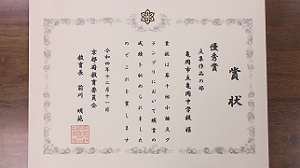 賞状
優秀賞
文集作品の部
亀岡市立亀岡中学校 様
貴校は第十回小論文グ
ランプリにおいて頭書の
成績を収められました
のでこれを賞します
令和四年十二月十一日
京都府教育委員会
教育長 前川 明範